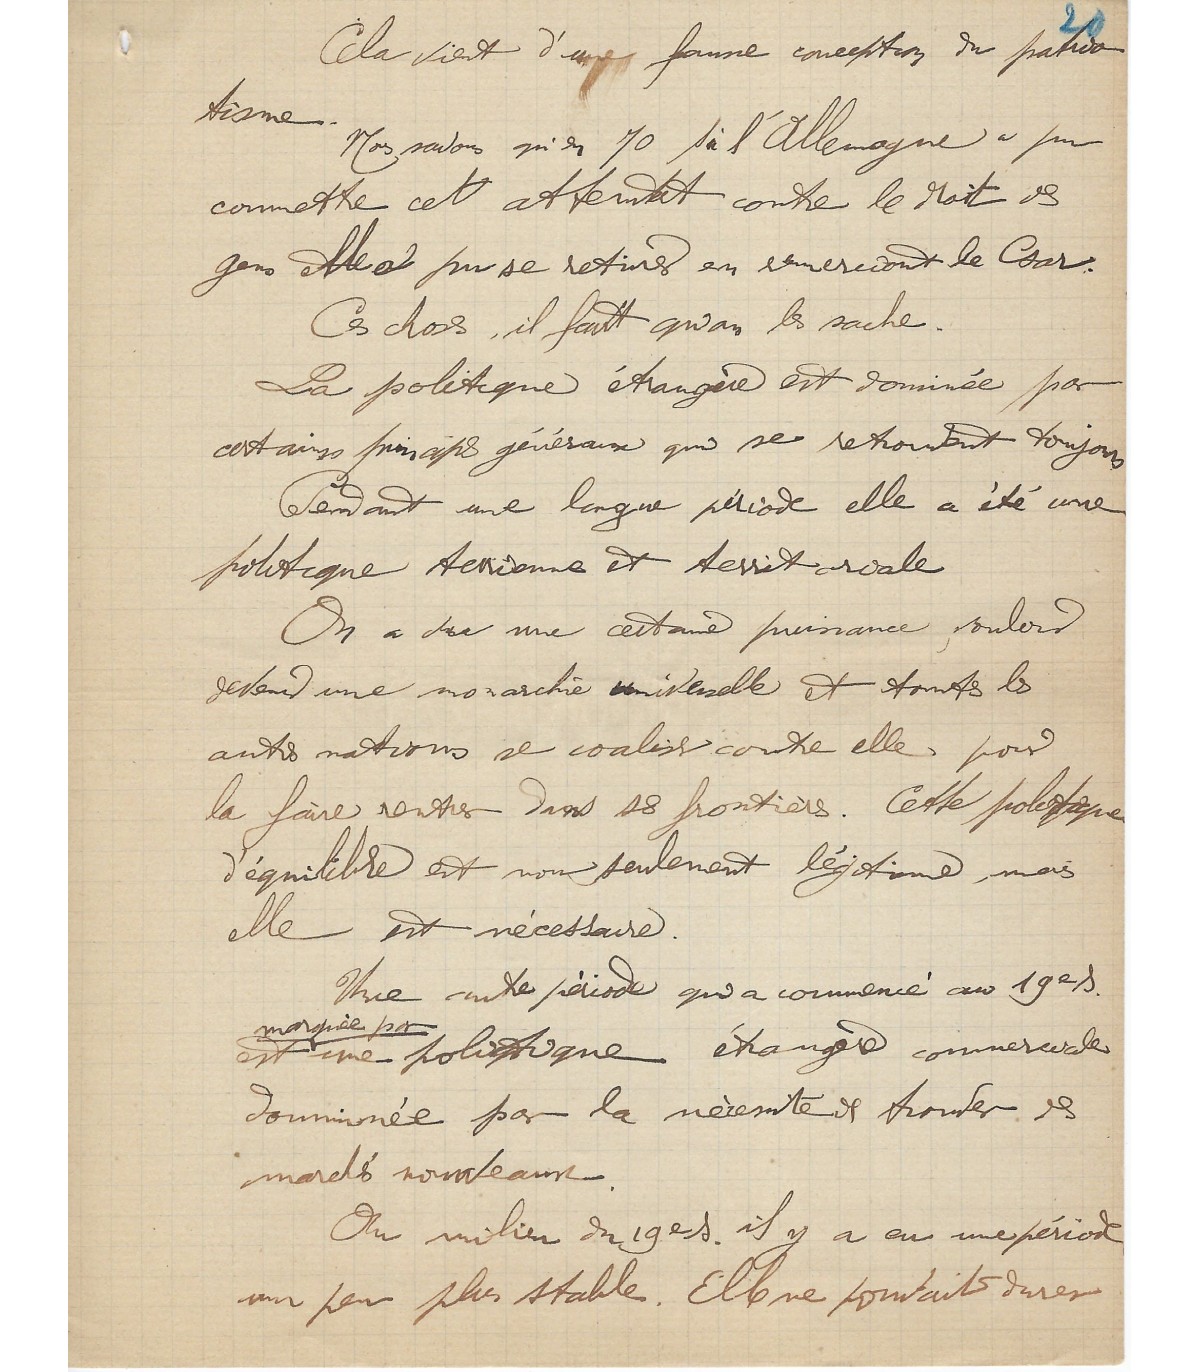 20
Cela vient d'une fausse conception du patrio
tisme.
Nous savons qu'en 70 si l'Allemagne a pu
commettre cet attentat contre le droit des
gens elle a pu se retirer en remerciant le Csar.
Ces choses, il faut qu'on les sache.
La politique étrangère est dominée par
certains principes généraux qui se retrouvent toujours
Pendant une longue période elle a été une
politique terrienne et territoriale
On a vu une certaine puissance, vouloir
devenir une monarchie universelle et toutes les
autres nations se coaliser contre elle pour
la faire rentrer dans ses frontières. Cette politique
d'équilibre est non seulement légitime, mais
elle est nécessaire.
Une autre période qui a commencé au 19e s.
marquée par
est une politique étrangère commerciale
dominée par la nécessité de trouver des
marchés nouveaux.
Au milieu du 19e s. il y a eu une période
un peu plus stable. Elle ne pouvait durer